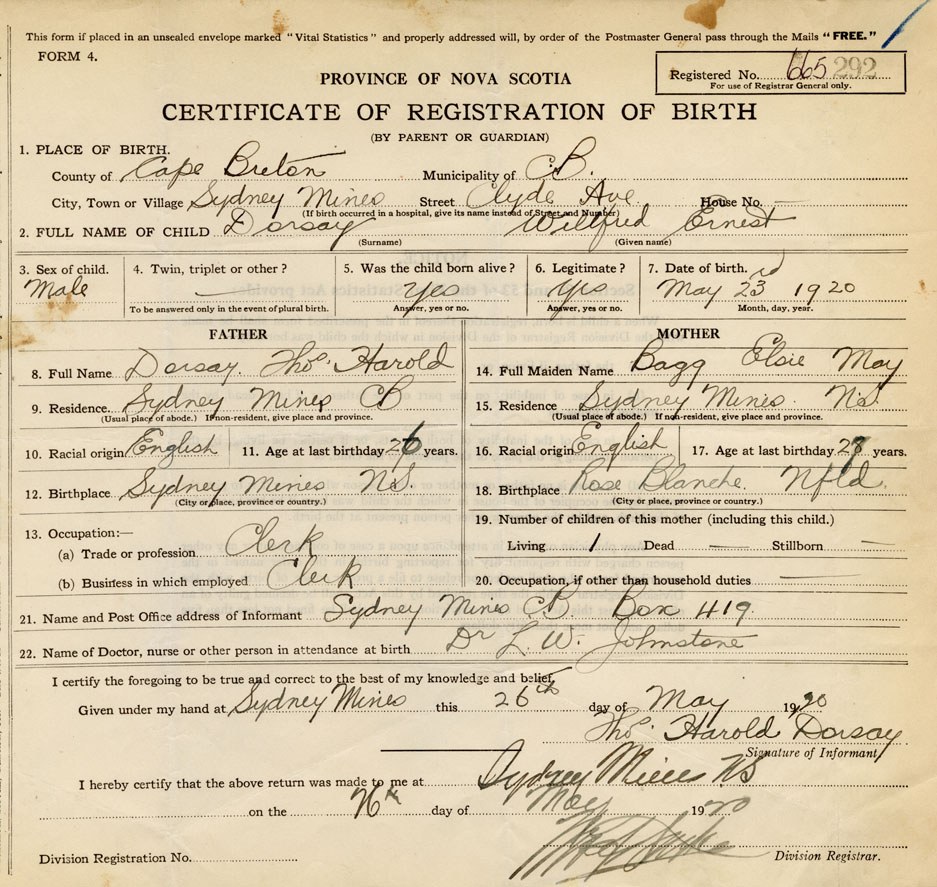 This form if placed in an unsealed envelope marked "Vital Statistics" and properly addressed will, by order of the Postmaster General pass through the Mails "FREE."
FORM 4.
Registered No. 665 292
For use of Registrar General only.
PROVINCE OF NOVA SCOTIA
CERTIFICATE OF REGISTRATION OF BIRTH
(BY PARENT OR GUARDIAN)
1. PLACE OF BIRTH.
County of Cape Breton Municipality of C.B.
City, Town or Village Sydney Mines Street Clyde Ave House No. —
(If birth occurred in a hospital, give its name instead of Street and Number)
2. FULL NAME OF CHILD Dorsay Willfred Ernest
(Surname) (Given name)
3. Sex of child. 4. Twin, triplet or other? 5. Was the child born alive? 6. Legitimate? 7. Date of birth.
Male — Yes Yes May 23rd 1920
To be answered only in the event of plural birth. Answer, yes or no. Answer, yes or no. Month, day, year.
FATHER
8. Full Name Dorsay. Thos. Harold
9. Residence Sydney Mines CB
(Usual place of abode.) If non-resident, give place and province.
10. Racial origin English 11. Age at last birthday 26 years.
12. Birthplace Sydney Mines N.S.
(City or place, province or country.)
13. Occupation:—
(a) Trade or profession Clerk
(b) Business in which employed Clerk
MOTHER
14. Full Maiden Name Bagg Elsie May
15. Residence Sydney Mines. N.S.
(Usual place of abode.) If non-resident, give place and province.
16. Racial origin English 17. Age at last birthday 28 years.
18. Birthplace Rose Blanche. Nfld.
(City or place, province or country.)
19. Number of children of this mother (including this child.)
Living 1 Dead — Stillborn —
20. Occupation, if other than household duties —
21. Name and Post Office address of Informant Sydney Mines C.B. Box 419.
22. Name of Doctor, nurse or other person in attendance at birth Dr L. W. Johnstone
I certify the foregoing to be true and correct to the best of my knowledge and belief,
Given under my hand at Sydney Mines this 26th day of May 1920
Thos. Harold Dorsay
Signature of Informant
I hereby certify that the above return was made to me at Sydney Mines NS
on the 26th day of May 1920
Division Registration No. Division Registrar.